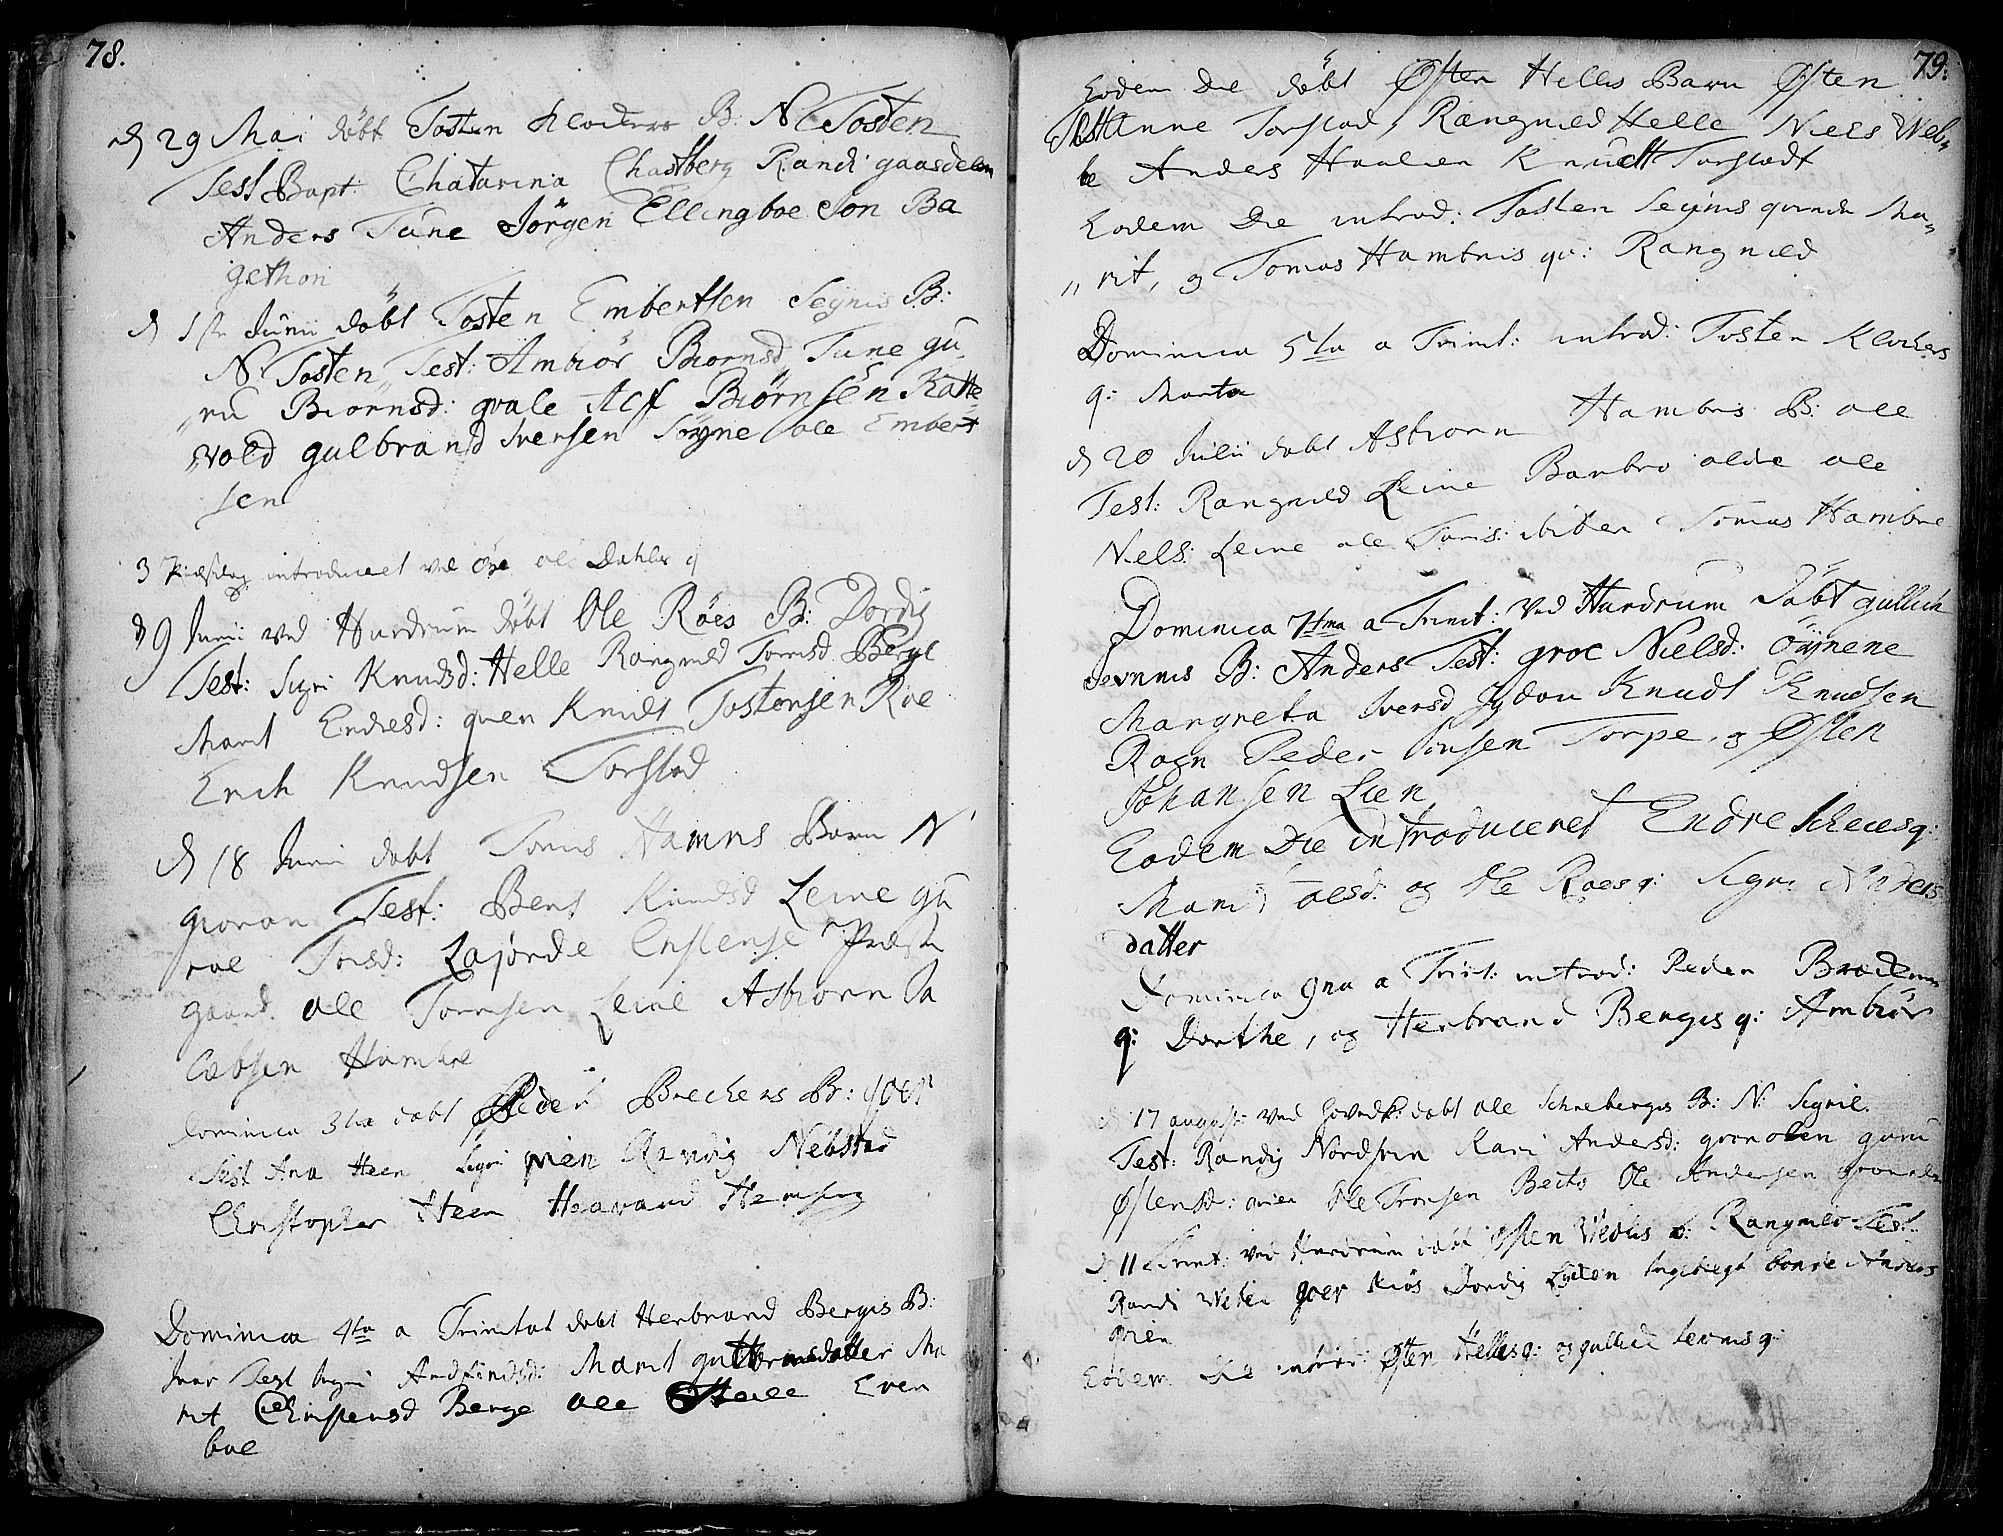 78.
d 29 Mai döbt Tosten Klockers B: N Tosten
Test Bapt: Chatarina Chastberg Randi gaasdelen
Anders Tune Jörgen Ellingboe Jon Ba
gethon
d 1ste Junii döbt Tosten Embertsen Seynis B:
N. Tosten, Test: Ambiör Biornsd Tune gu
ru Biornsd: qvale Alf Biörnsen Katte
vold gulbrand Iversen Seyne ole Embert
sen
3 Pindsdag introduceret ved Öye ole Dahles q
d 9 Junii ved Hurdrum döbt Ole Röes B: Dordi
Test: Sigri Knudsd: Helle Rangnild Tomisd Berge
Marit Endresd: qvien Knudt Tostensen Roe
Erich Knudsen Torstad
d 18 Junii dobt Tomis Hamris Barn N
gioran Test: Berit Knudsd Leine gu
roe Torisd: Lajorde Cristense Præste
gaard. ole Tomisen Leine Asbiorn Ja
cobsen Hambre
Dominica 3tia dobt Peder Breckens B: goer
Test Ana Heen Sigri qvien Randig Nebstad
Christopher Heen Haavard Hamsing
Dominica 4ta a Trinitat dobt Herbrand Bergis B:
Ivar Test Ingri Andfindsd: Marit gulbransdatter Ma
rit Christensd Berge ole Heile Even
boe
79:
Eodem Die döbt Østen Helles Barn Østen
Test Anne Torstad, Rangnild Helle Niels Web„
be Anders Haalien Knudt Torstadt
Eodem Die introd: Tosten Seynis qvinde Ma„
„rit, og Tomas Hambris qv: Rangnild
Dominica 5ta a Trinit: introd: Tosten Klockers
q: Marta
d 20 Julii dobt Asbiorn Hambris B: ole
Test: Rangnild Leine Barbro olde ole
Niels: Leine ole Toris: ibiden Tomas Hambre
Dominica 7tma a Trinit: Ved Hurdrum Döbt gullich
Jevnnis B: Anders Test: groe Nielsd: öynene
Mangreta Iversd Jydou Knudt Knudsen
Rogn Peder Jonsen Torpe, og Østen
Johansen Lien
Eodem Die introduceret Endre Scheies q:
Marit olsd: og Ole Roes q: Sigri Anders
datter
Dominica 9na a Trinit: introd: Peder Bræcken
q: Dorthe, og Herbrand Bergis q: Ambiör
d 17 august: ved hovedk: dobt ole Schrebergis B: N: Sigril.
Test: Randig Nordsven Kari Andersd: gronolen guru
Østensd: qvien Ole Tronsen Beito Ole Andersen gronolen
D. 11 Trinit: ved Hurdrum dobt Østen Wedlis b: Rangnild Test:
Randi Weten goer Kiös Dordig Lykken Ingebregt bonde Anders
qvien
Eodem Die introd: Østen Helles q: og gullich Jevnnis q: